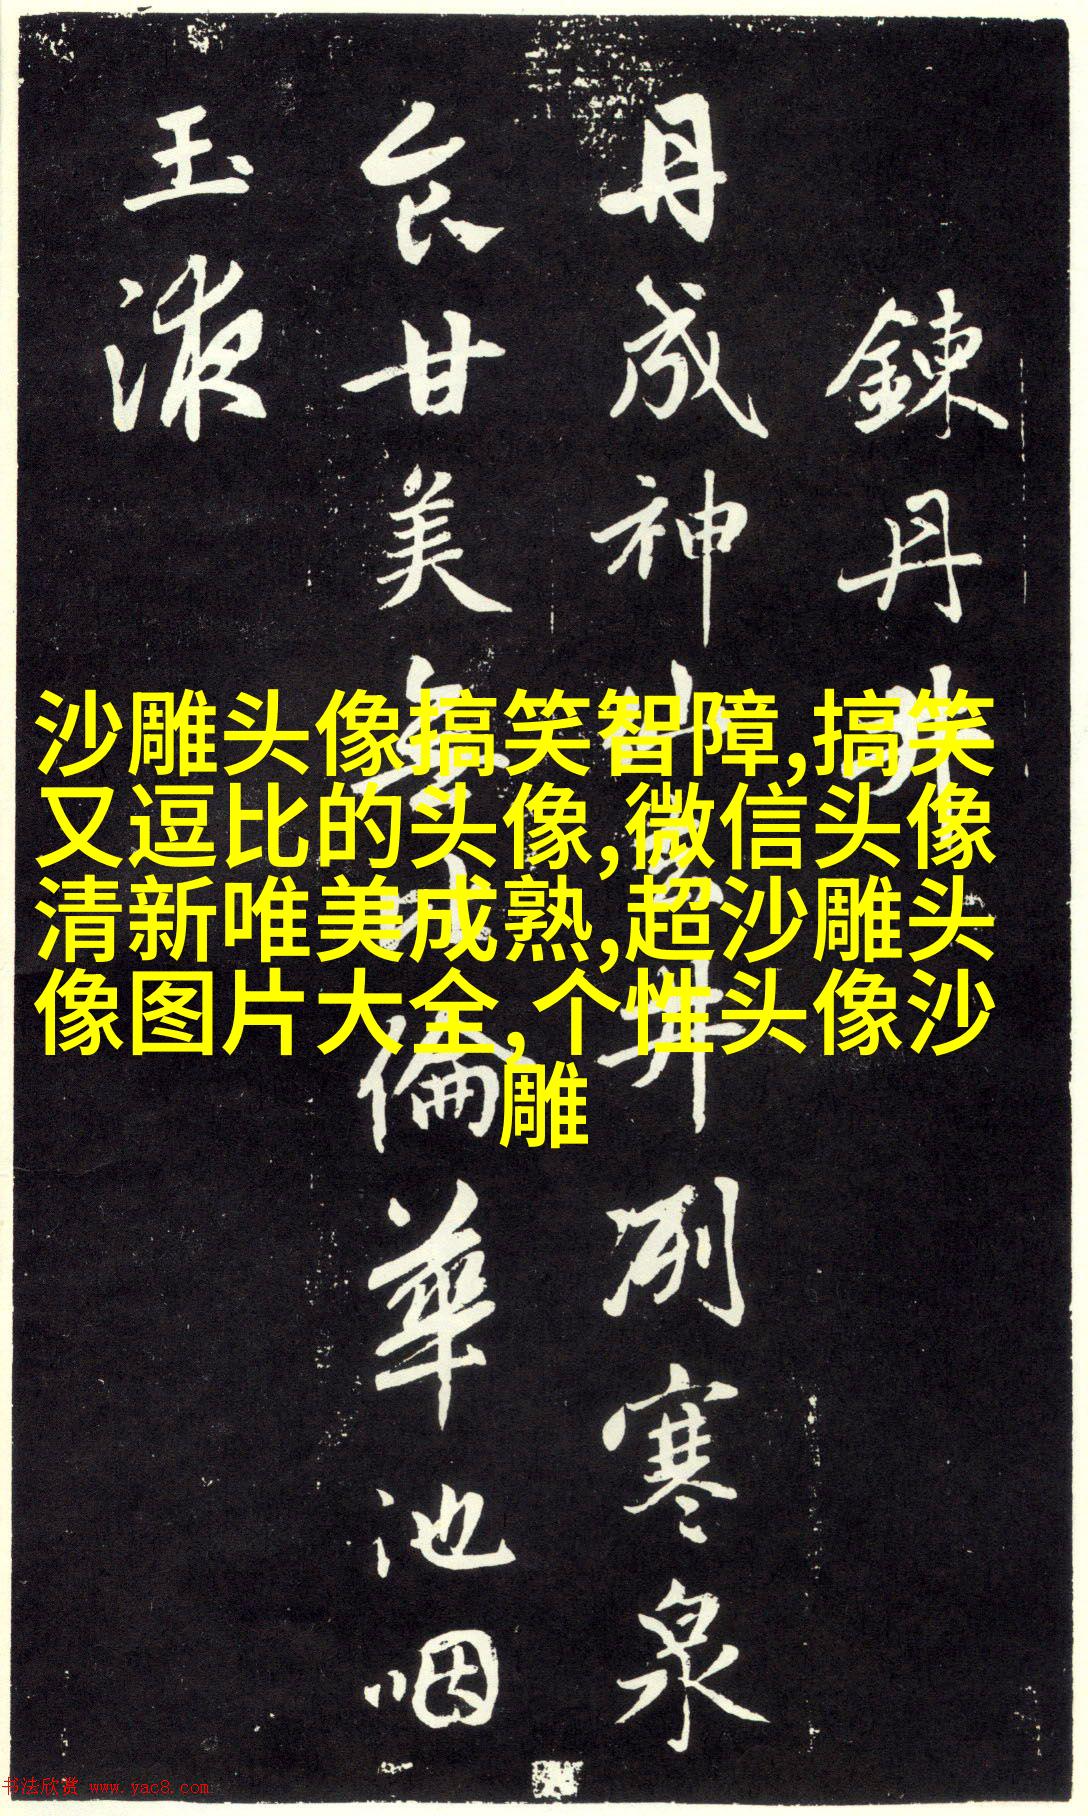 鍊丹
丹成神井冽寒泉
食甘美無倫華池咽
玉液
沙雕头像搞笑智障,搞笑
又逗比的头像,微信头像
清新唯美成熟,超沙雕头
像图片大全,个性头像沙
雕
书法欣赏 www.yac8.com